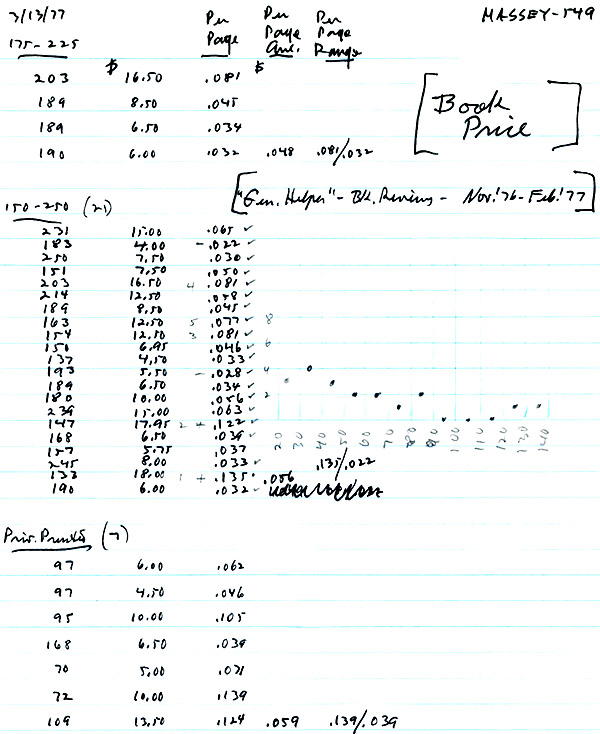 3/13/77 Per Per Per MASSEY-549
175-225 Page Page Page
Ave. Range
203 $ 16.50 .081 $
189 8.50 .045
189 6.50 .034
190 6.00 .032 .048 .081/.032
[Book Price]
["Gen. Helper" - Bk. Reviews - Nov.'76-Feb.'77]
150-250 (21)
231 15.00 .065 ✓
183 4.00 - .022 ✓
250 7.50 .030 ✓
151 7.50 .050 ✓
203 16.50 4 .081 ✓
214 12.50 .058 ✓
189 8.50 .045 ✓
163 12.50 5 .077 ✓ 8
154 12.50 3 .081 ✓
150 6.95 .046 ✓ 6
137 4.50 .033 ✓
193 5.50 - .028 ✓ 4
189 6.50 .034 ✓
180 10.00 .056 ✓ 2
239 15.00 .063 ✓
147 17.95 2 + .122 ✓
168 6.50 .039 ✓
20 30 40 50 60 70 80 90 100 110 120 130 140
157 5.75 .037
245 8.00 .033 ✓ .135/.022
133 18.00 1 + .135 .056
190 6.00 .032 ✓
Priv. Printed (7)
97 6.00 .062
97 4.50 .046
95 10.00 .105
168 6.50 .039
70 5.00 .071
72 10.00 .139
109 13.50 .124 .059 .139/.039